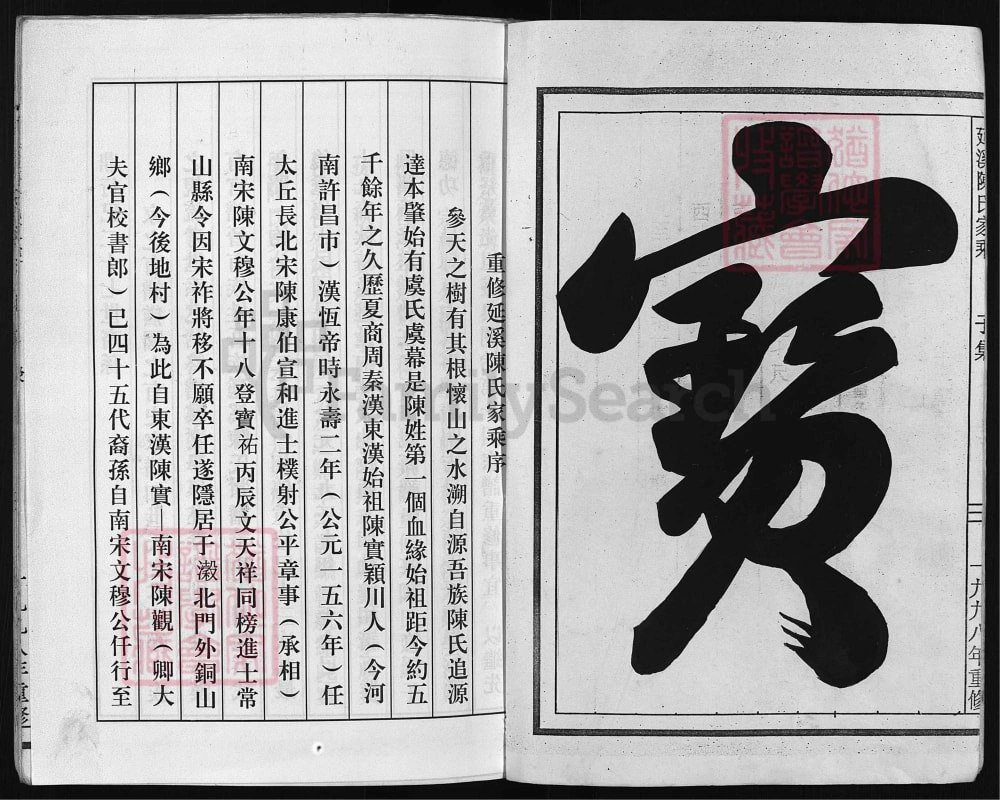 延溪陳氏家乘
子集
三
一九九八年重修
寶
重修延溪陳氏家乘序
參天之樹有其根懷山之水溯自源吾族陳氏追源
達本肇始有虞氏虞幕是陳姓第一個血緣始祖距今約五
千餘年之久歷夏商周秦漢東漢始祖陳實穎川人（今河
南許昌市）漢恆帝時永壽二年（公元一一五六年）任
太丘長北宋陳康伯宣和進士樸射公平章事（承相）
南宋陳文穆公年十八登寶祐丙辰文天祥同榜進士常
山縣令因宋祚將移不願卒任遂隱居于瀫北門外銅山
鄉（今後地村）為此自東漢陳實—南宋陳觀（卿大
夫官校書郎）已四十五代裔孫自南宋文穆公仟行至
一九九八年重修
FamilySearch